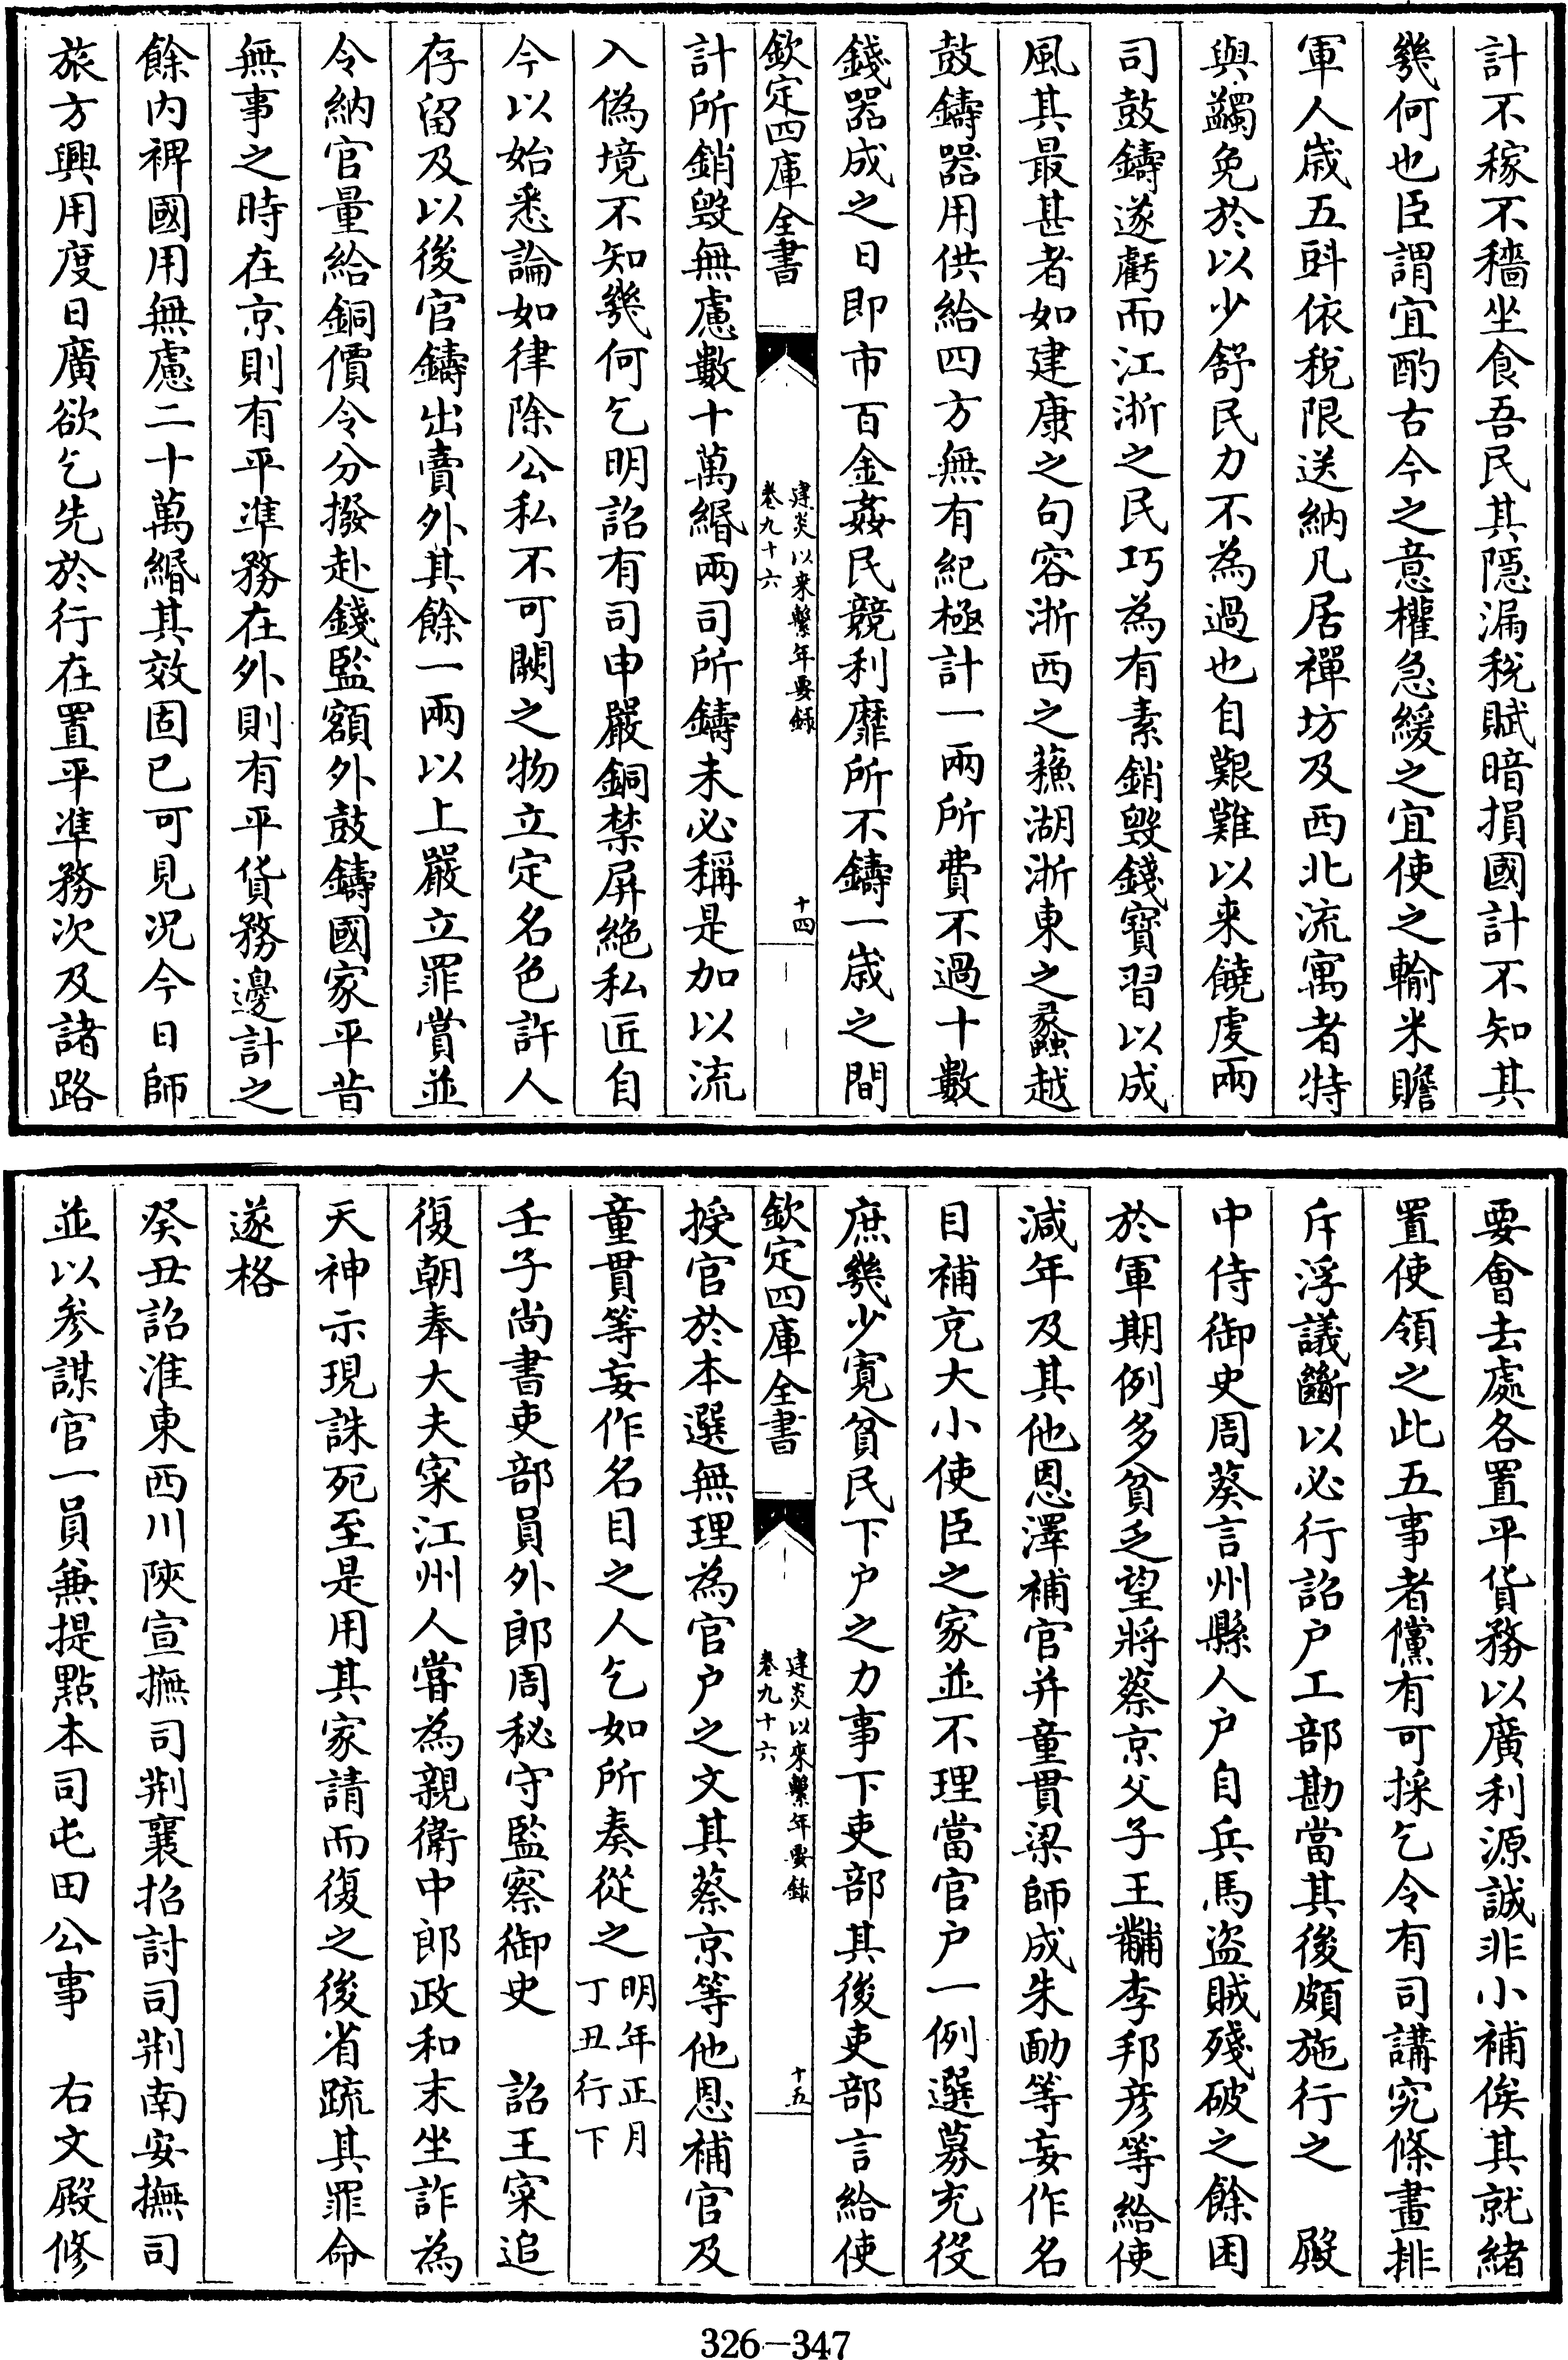 計不稼不穡坐食吾民其隠漏稅賦暗損國計不知其
幾何也臣謂宜酌古今之意權急緩之宜使之輸米贍
軍人歳五㪷依稅限送納凡居禪坊及西北流寓者特
與蠲免於以少舒民力不為過也自艱難以来饒虔兩
司鼓鑄遂虧而江浙之民巧為有素銷毁錢寳習以成
風其最甚者如建康之句容浙西之蘓湖浙東之蠡越
鼓鑄器用供給四方無有紀極計一兩所費不過十數
錢器成之日即市百金姦民競利靡所不鑄一歳之間
欽定四庫全書
建炎以来繫年要録
卷九十六
十四
計所銷毁無慮數十萬緡兩司所鑄未必稱是加以流
入偽境不知幾何乞明詔有司申嚴銅禁屏絶私匠自
今以始悉論如律除公私不可闕之物立定名色許人
存留及以後官鑄出賣外其餘一兩以上嚴立罪賞並
令納官量給銅價令分撥赴錢監額外鼓鑄國家平昔
無事之時在京則有平凖務在外則有平貨務邊計之
餘内裨國用無慮二十萬緡其效固已可見况今日師
旅方興用度日廣欲乞先於行在置平凖務次及諸路
要會去處各置平貨務以廣利源誠非小補俟其就緒
置使領之此五事者儻有可採乞令有司講究條畫排
斥浮議斷以必行詔户工部勘當其後頗施行之　殿
中侍御史周葵言州縣人户自兵馬盗賊殘破之餘困
於軍期例多貧乏望將蔡京父子王黼李邦彦等給使
減年及其他恩澤補官并童貫梁師成朱勔等妄作名
目補充大小使臣之家並不理當官户一例選募充役
庶幾少寛貧民下户之力事下吏部其後吏部言給使
欽定四庫全書
建炎以來繫年要録
卷九十六
十五
授官於本選無理為官户之文其蔡京等他恩補官及
童貫等妄作名目之人乞如所奏從之明年正月丁丑行下
壬子尚書吏部員外郎周秘守監察御史　詔王寀追
復朝奉大夫寀江州人嘗為親衛中郎政和末坐詐為
天神示現誅死至是用其家請而復之後省疏其罪命
遂格
癸丑詔淮東西川陜宣撫司荆襄招討司荆南安撫司
並以参謀官一員兼提點本司屯田公事　右文殿修
326－347